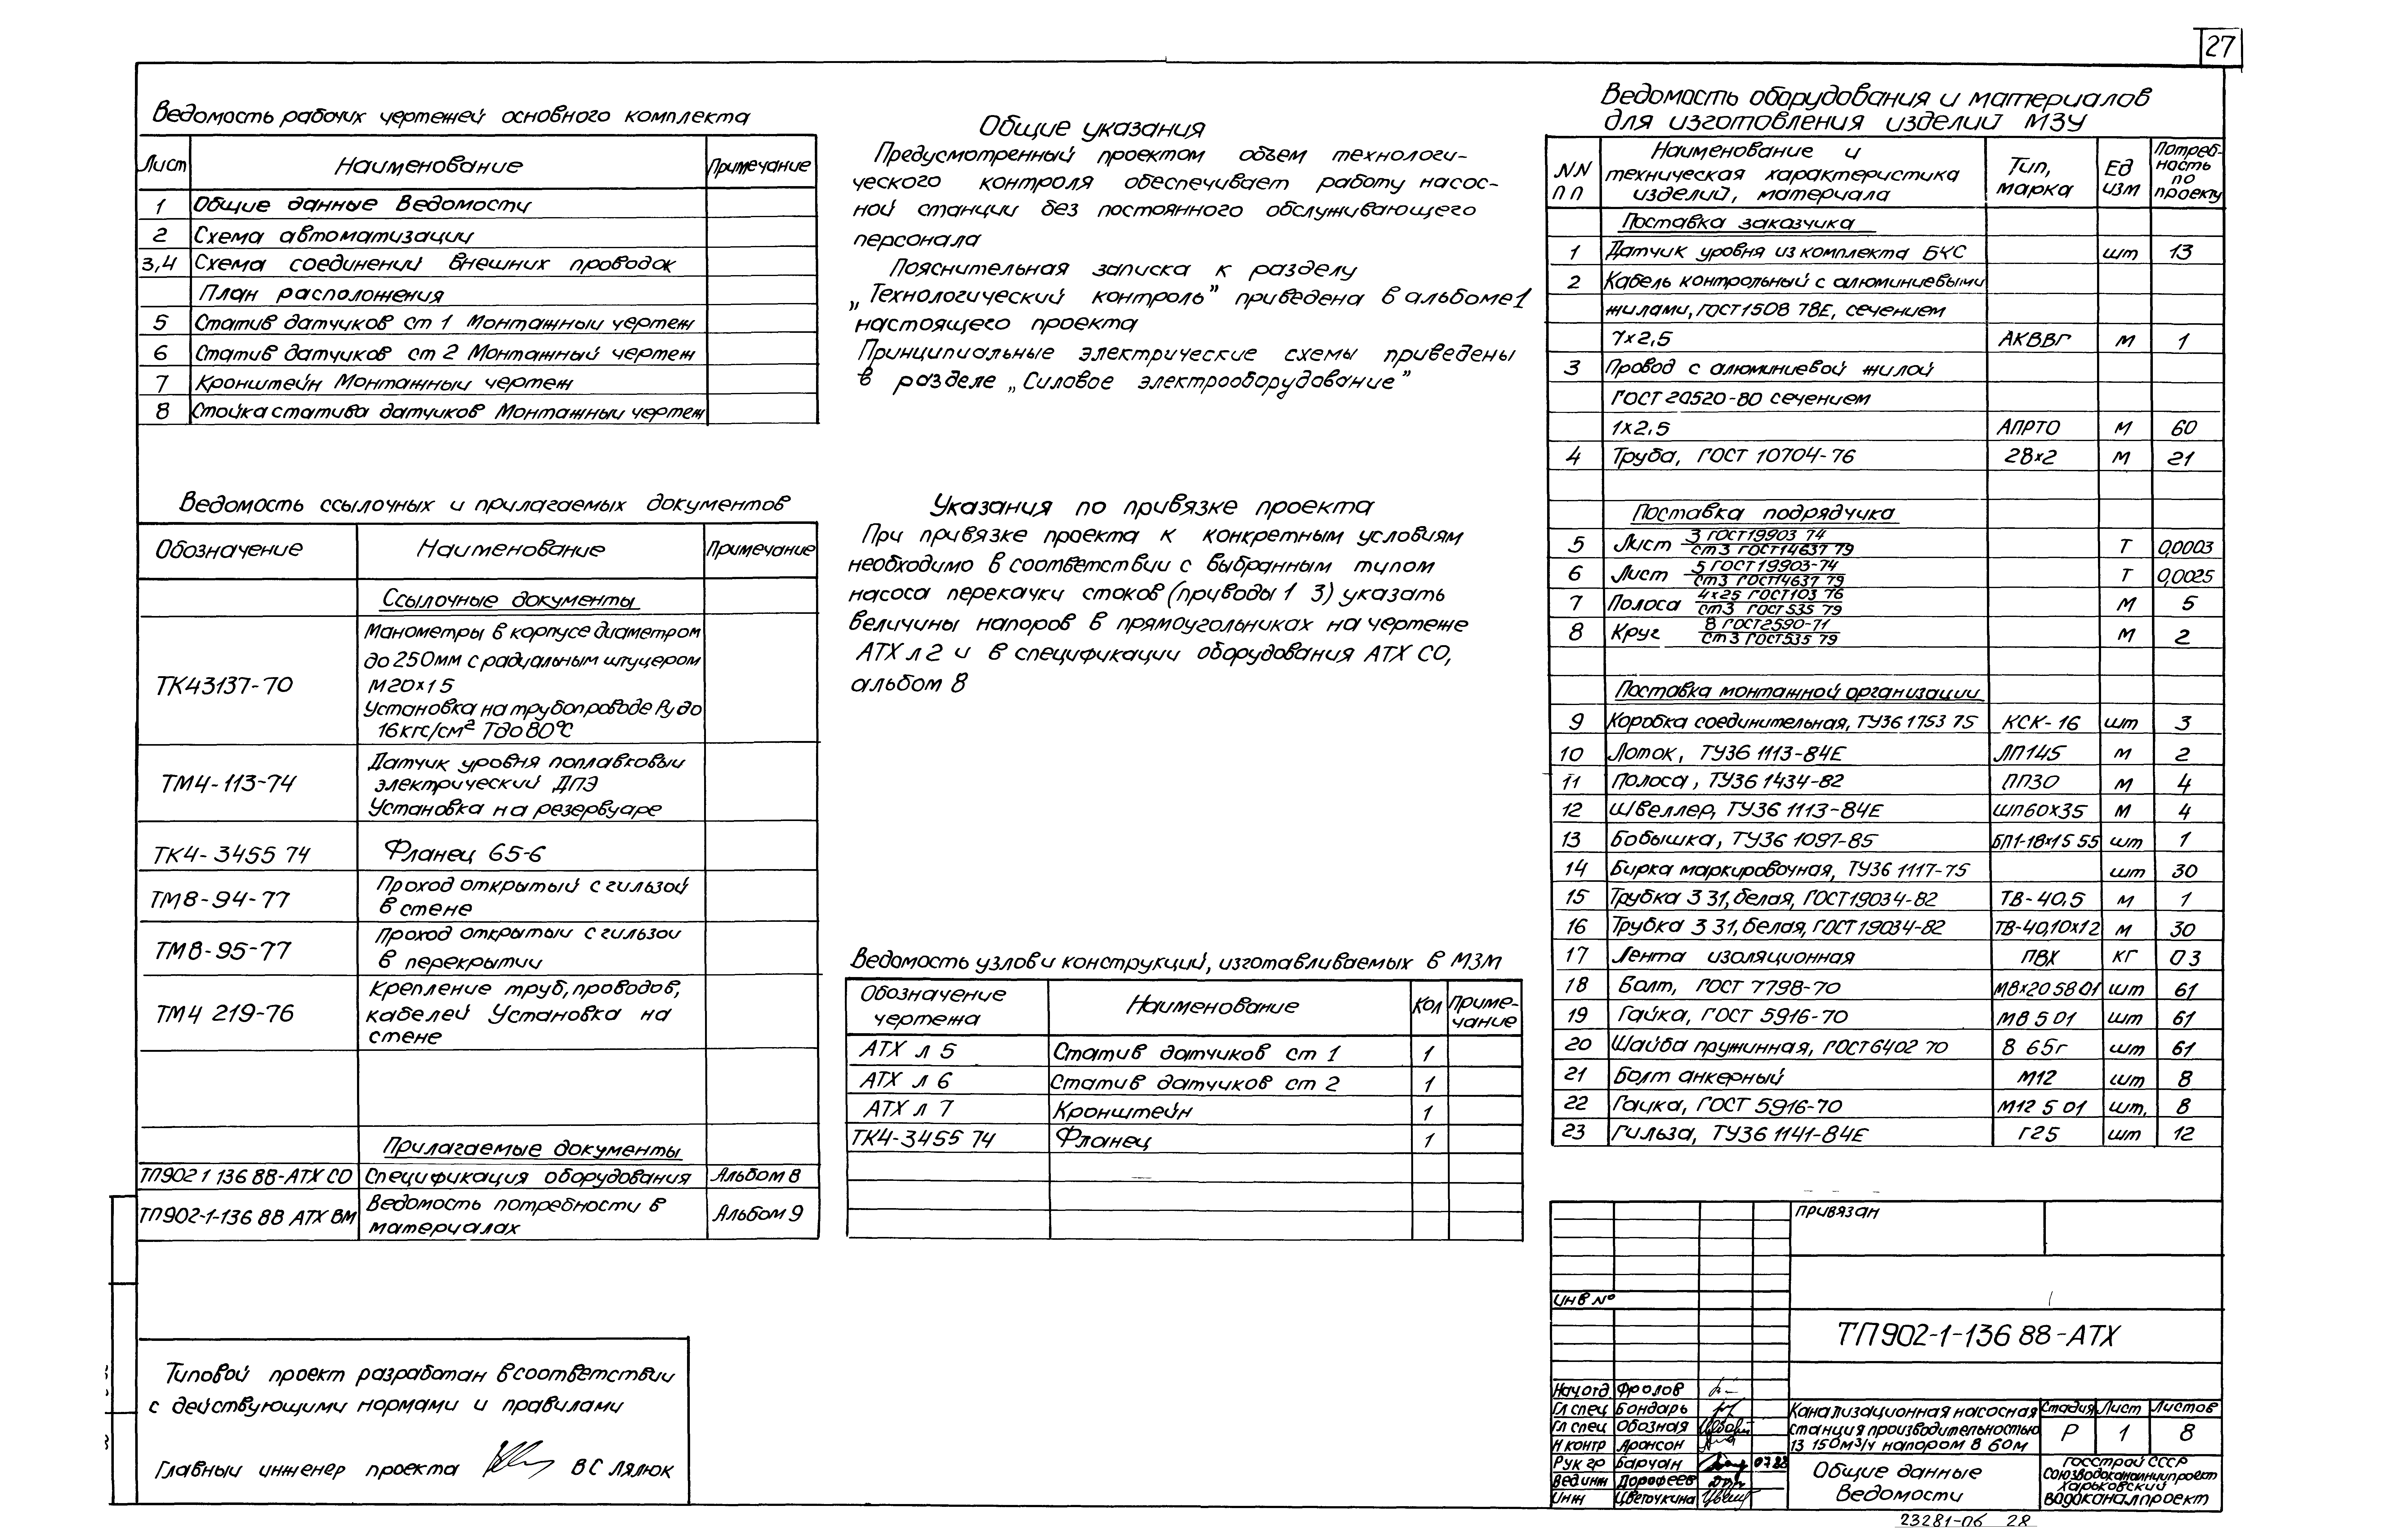 27
Ведомость рабочих чертежей основного комплекта
Лист Наименование Примечание
1 Общие данные Ведомости
2 Схема автоматизации
3,4 Схема соединений внешних проводок
План расположения
5 Статив датчиков ст 1 Монтажный чертеж
6 Статив датчиков ст 2 Монтажный чертеж
7 Кронштейн Монтажный чертеж
8 Стойка статива датчиков Монтажный чертеж
Ведомость ссылочных и прилагаемых документов
Обозначение Наименование Примечание
Ссылочные документы
Манометры в корпусе диаметром
до 250мм с радиальным штуцером
ТК43137-70 М20х1 5
Установка на трубопроводе Ру до
16кгс/см² Т до 80°С
Датчик уровня поплавковый
ТМ4-113-74 электрический ДПЭ
Установка на резервуаре
ТК4-3455 74 Фланец 65-6
ТМ8-94-77 Проход открытый с гильзой
в стене
ТМ8-95-77 Проход открытый с гильзой
в перекрытии
Крепление труб, проводов,
ТМ4 219-76 кабелей Установка на
стене
Прилагаемые документы
ТП902 1 136 88-АТХ СО Спецификация оборудования Альбом 8
ТП902-1-136 88 АТХ ВМ Ведомость потребности в Альбом 9
материалах
Типовой проект разработан в соответствии
с действующими нормами и правилами
Главный инженер проекта В С Лялюк
Общие указания
Предусмотренный проектом объем технологи-
ческого контроля обеспечивает работу насос-
ной станции без постоянного обслуживающего
персонала
Пояснительная записка к разделу
„Технологический контроль” приведена в альбоме 1
настоящего проекта
Принципиальные электрические схемы приведены
в разделе „Силовое электрооборудование”
Указания по привязке проекта
При привязке проекта к конкретным условиям
необходимо в соответствии с выбранным типом
насоса перекачки стоков (приводы 1 3) указать
величины напоров в прямоугольниках на чертеже
АТХ л 2 и в спецификации оборудования АТХ СО,
альбом 8
Ведомость узлов и конструкций, изготавливаемых в МЗМ
Обозначение чертежа Наименование Кол Приме-чание
АТХ л 5 Статив датчиков ст 1 1
АТХ л 6 Статив датчиков ст 2 1
АТХ л 7 Кронштейн 1
ТК4-3455 74 Фланец 1
Ведомость оборудования и материалов
для изготовления изделий МЗУ
NN п п Наименование и техническая характеристика изделий, материала Тип, марка Ед изм Потреб-ность по проекту
Поставка заказчика
1 Датчик уровня из комплекта БКС шт 13
2 Кабель контрольный с алюминиевыми
жилами, ГОСТ 1508 78Е, сечением
7х2,5 АКВВГ м 1
3 Провод с алюминиевой жилой
ГОСТ 20520-80 сечением
1х2,5 АПРТО м 60
4 Труба, ГОСТ 10704-76 28х2 м 21
Поставка подрядчика
5 Лист 3 ГОСТ19903 74 / ст3 ГОСТ14637 79 т 0,0003
6 Лист 5 ГОСТ19903-74 / ст3 ГОСТ14637 79 т 0,0025
7 Полоса 4х25 ГОСТ103 76 / ст3 ГОСТ535 79 м 5
8 Круг 8 ГОСТ2590-71 / ст3 ГОСТ535 79 м 2
Поставка монтажной организации
9 Коробка соединительная, ТУ36 1753 75 КСК-16 шт 3
10 Лоток, ТУ36 1113-84Е ЛП145 м 2
11 Полоса, ТУ36 1434-82 ПП30 м 4
12 Швеллер, ТУ36 1113-84Е ШП60х35 м 4
13 Бобышка, ТУ36 1097-85 БП1-18х15 55 шт 1
14 Бирка маркировочная, ТУ36 1117-75 шт 30
15 Трубка 3 31, белая, ГОСТ19034-82 ТВ-40,5 м 1
16 Трубка 3 31, белая, ГОСТ19034-82 ТВ-40,10х12 м 30
17 Лента изоляционная ПВХ кг 0 3
18 Болт, ГОСТ 7798-70 М8х20 58 01 шт 61
19 Гайка, ГОСТ 5916-70 М8 5 01 шт 61
20 Шайба пружинная, ГОСТ6402 70 8 65г шт 61
21 Болт анкерный М12 шт 8
22 Гайка, ГОСТ 5916-70 М12 5 01 шт, 8
23 Гильза, ТУ36 1141-84Е Г25 шт 12
Привязан
Инв №
ТП902-1-136 88-АТХ
Нач отд Фролов
Гл спец Бондарь
Гл спец Обозная
Н контр Аронсон
Рук гр Барчан 07.88
Вед инж Дорофеев
Инж Цветочкина
Канализационная насосная
станция производительностью
13 150м³/ч напором 8 60м
Стадия Лист Листов
Р 1 8
Общие данные
Ведомости
Госстрой СССР
Союзводоканалниипроект
Харьковский
Водоканалпроект
23281-06 28